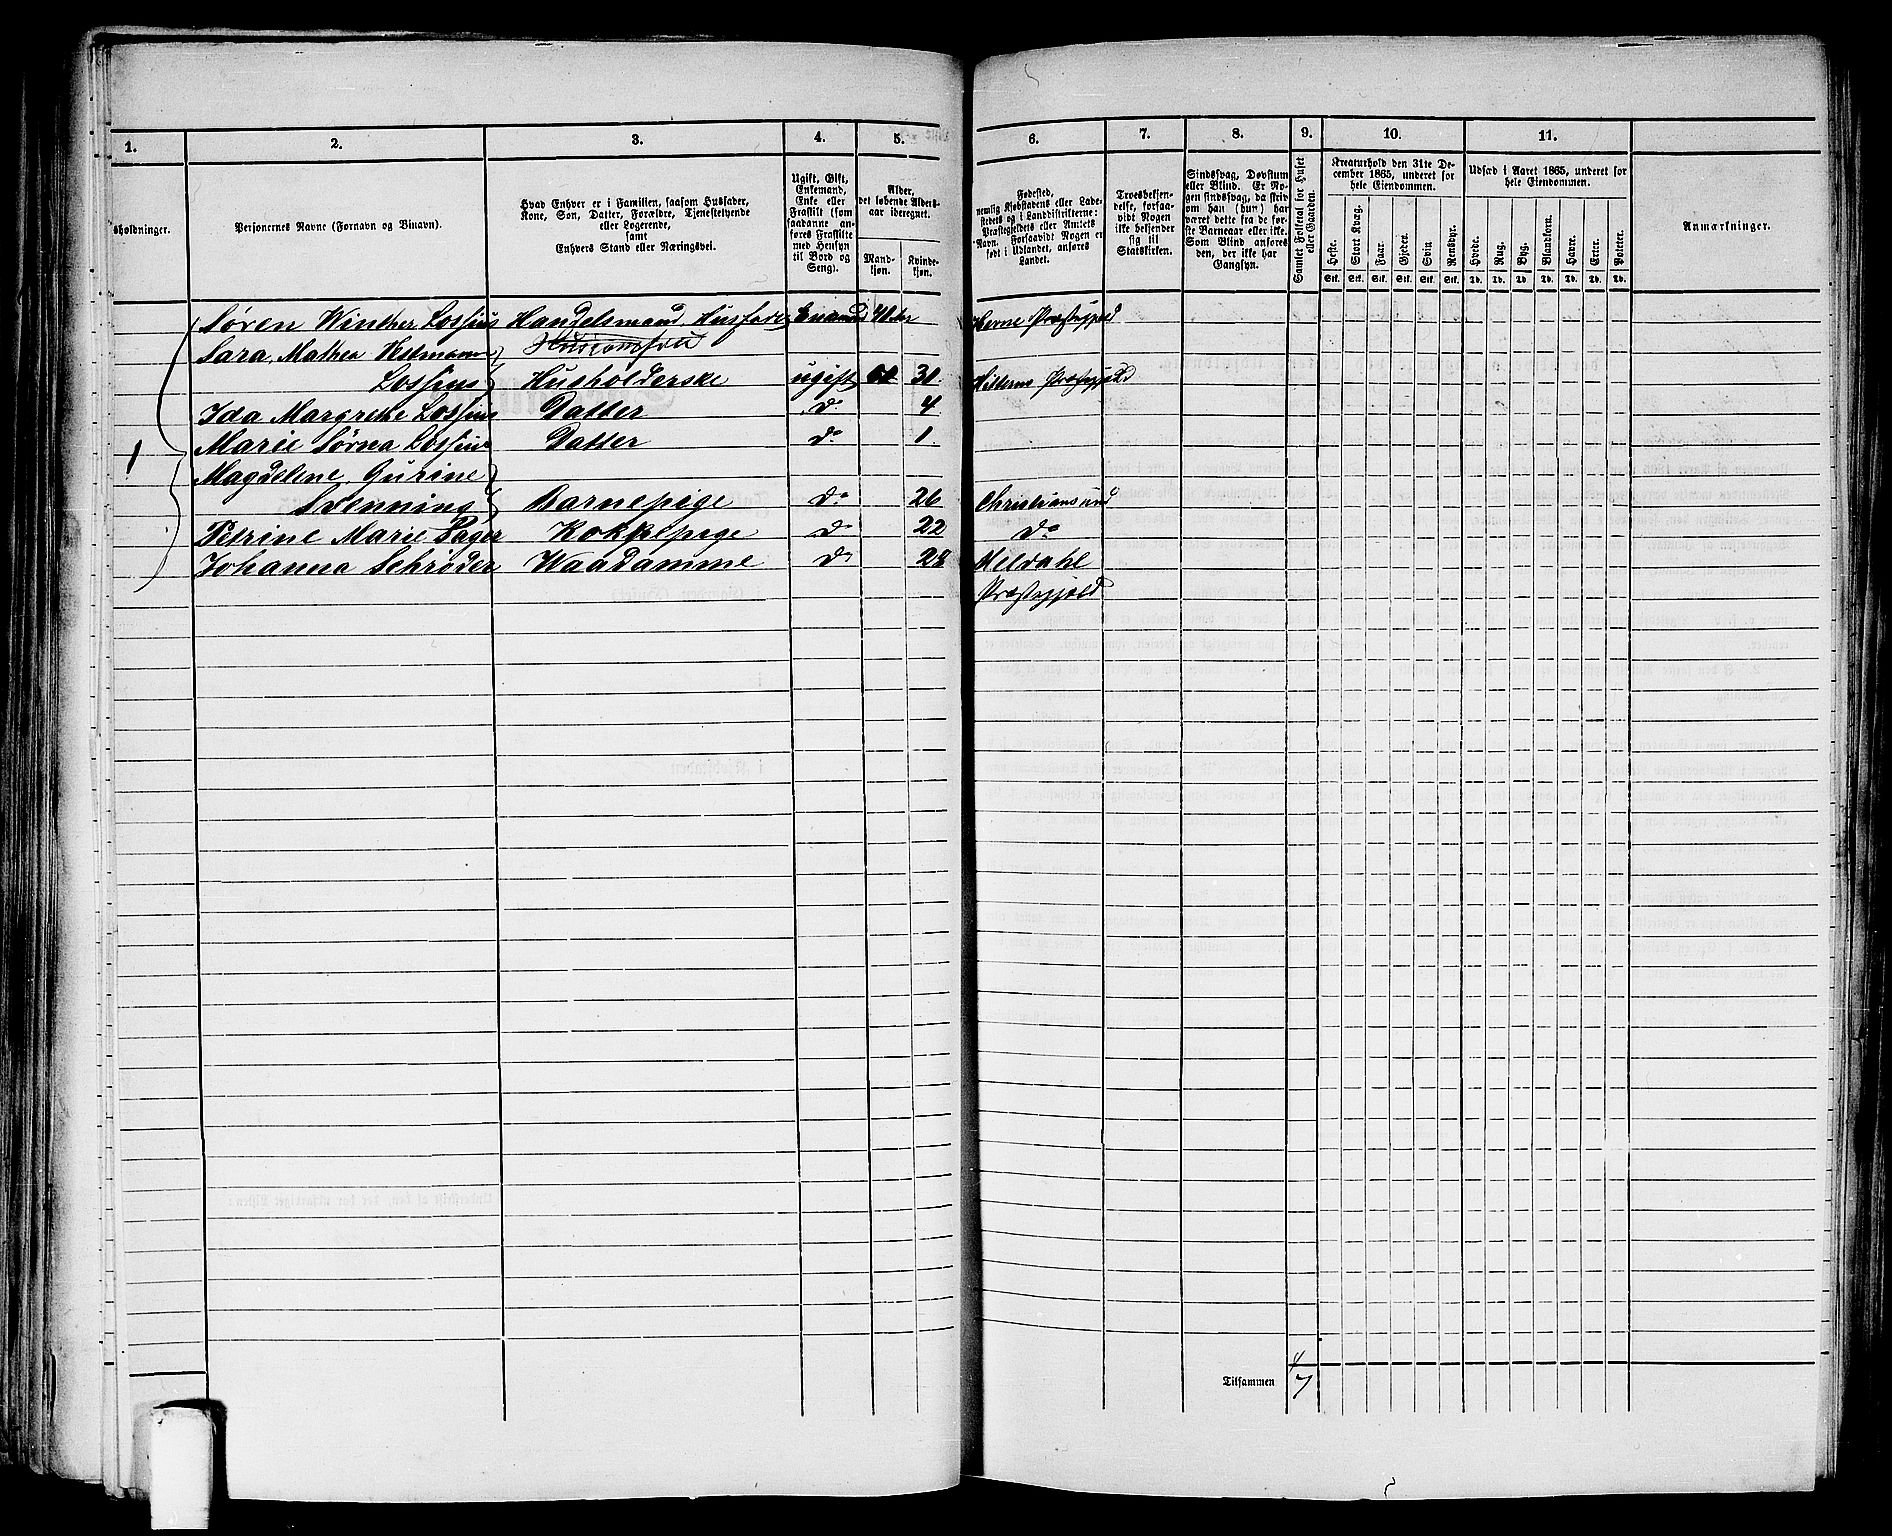 1. 2. 3. 4. 5. 6. 7. 8. 9. 10. 11.
sholdninger.
Personernes Navne (Fornavn og Binavn).
Hvad Enhver er i Familien, saasom Husfader,
Kone, Søn, Datter, Forældre, Tjenestetyende
eller Logerende,
samt
Enhvers Stand eller Næringsvei.
Ugift, Gift,
Enkemand,
Enke eller
Fraskilt (som
saadanne an-
føres Fraskilte
med Hensyn
til Bord og
Seng).
Alder,
det løbende Alders-
aar iberegnet.
Mand-
kjøn.
Kvinde-
kjøn.
Fødested,
nemlig Kjøbstadens eller Lade-
stedets og i Landdistrikterne:
Præstegjeldets eller Amtets
Navn. Forsaavidt Nogen er
født i Udlandet, anføres
Landet.
Troesbekjen-
delse, forsaa-
vidt Nogen
ikke bekjender
sig til
Statskirken.
Sindssvag, Døvstum
eller Blind. Er No-
gen sindssvag, da skriv
om han (hun) har
været dette fra de før-
ste Barneaar eller ikke.
Som Blind anføres
den, der ikke har
Gangsyn.
Samlet Folketal for Huset
eller Gaarden.
Kreaturhold den 31te De-
cember 1865, underet for
hele Eiendommen.
Heste. Stort Kvæg. Faar. Gjeder. Svin Rensdyr.
Stk. Stk. Stk. Stk. Stk. Stk.
Udsæd i Aaret 1865, underet for
hele Eiendommen.
Hvede. Rug. Byg. Blandkorn. Havre. Erter. Poteter.
Td. Td. Td. Td. Td. Td. Td.
Anmærkninger.
Søren Winther Lossius Handelsmand, Husfader 41 Herne Præstegjeld
Sara Mathea
Lossius Husholderske ugift 31 Hitterns Præstegjeld
Ida Margrethe Lossius Datter do 4
1 Marie Sørna Lossius Datter do 1
Magdelene Gurine
Svenning Barnepige do 26 Christiansund
Petrine Marie Kokkepige do 22 do
Johanna Schrøder Waadamme do 28 Meldahl
Præstegjeld
Tilsammen 7